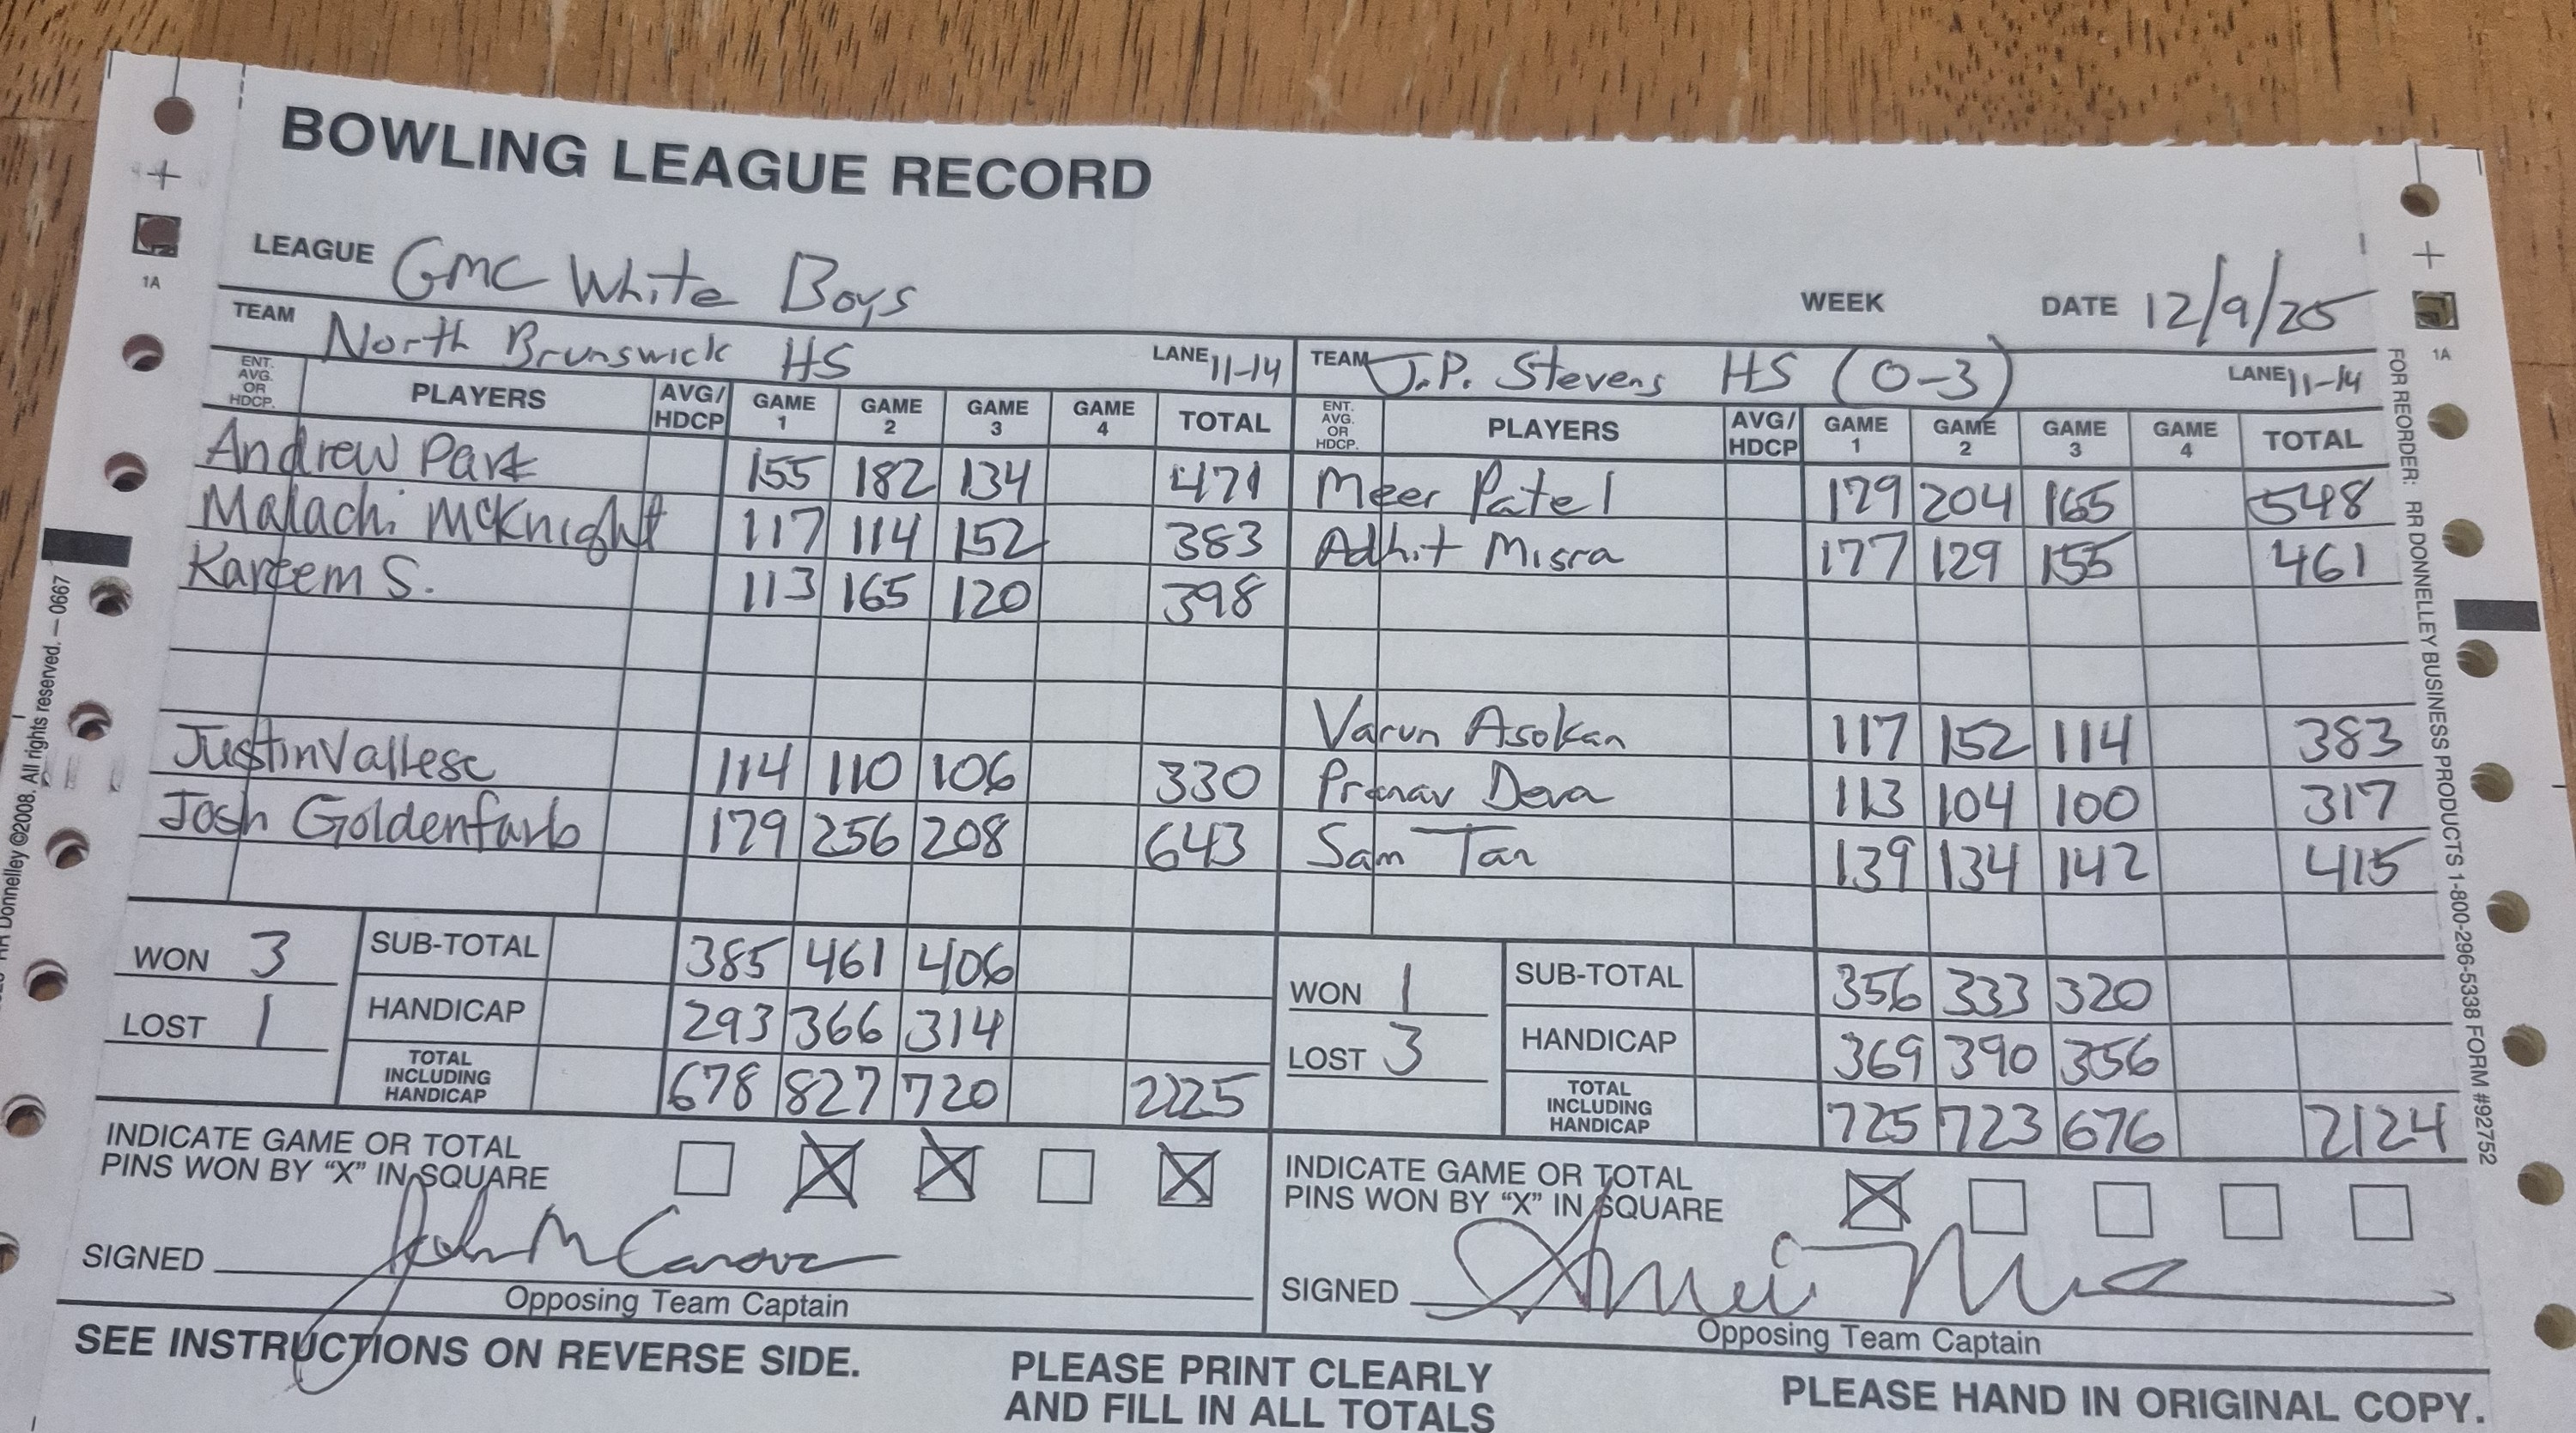 BOWLING LEAGUE RECORD
LEAGUE GMC White Boys WEEK DATE 12/9/25
TEAM North Brunswick HS LANE 11-14 TEAM J.P. Stevens HS (0-3) LANE 11-14
ENT. AVG. OR HDCP. PLAYERS AVG/HDCP GAME 1 GAME 2 GAME 3 GAME 4 TOTAL ENT. AVG. OR HDCP. PLAYERS AVG/HDCP GAME 1 GAME 2 GAME 3 GAME 4 TOTAL
Andrew Park 155 182 134 471 Meer Patel 179 204 165 548
Malachi McKnight 117 114 152 383 Adhit Misra 177 129 155 461
Kareem S. 113 165 120 398
Varun Asokan 117 152 114 383
Justin Vallese 114 110 106 330 Pranav Deva 113 104 100 317
Josh Goldenfarb 179 256 208 643 Sam Tan 139 134 142 415
WON 3 SUB-TOTAL 385 461 406 WON 1 SUB-TOTAL 356 333 320
LOST 1 HANDICAP 293 366 314 LOST 3 HANDICAP 369 390 356
TOTAL INCLUDING HANDICAP 678 827 720 2225 TOTAL INCLUDING HANDICAP 725 723 676 2124
INDICATE GAME OR TOTAL PINS WON BY “X” IN SQUARE INDICATE GAME OR TOTAL PINS WON BY “X” IN SQUARE
SIGNED SIGNED
Opposing Team Captain Opposing Team Captain
SEE INSTRUCTIONS ON REVERSE SIDE. PLEASE PRINT CLEARLY AND FILL IN ALL TOTALS PLEASE HAND IN ORIGINAL COPY.
1A
1A
Donnelley ©2008. All rights reserved. — 0667
FOR REORDER: RR DONNELLEY BUSINESS PRODUCTS 1-800-296-5338 FORM #92752